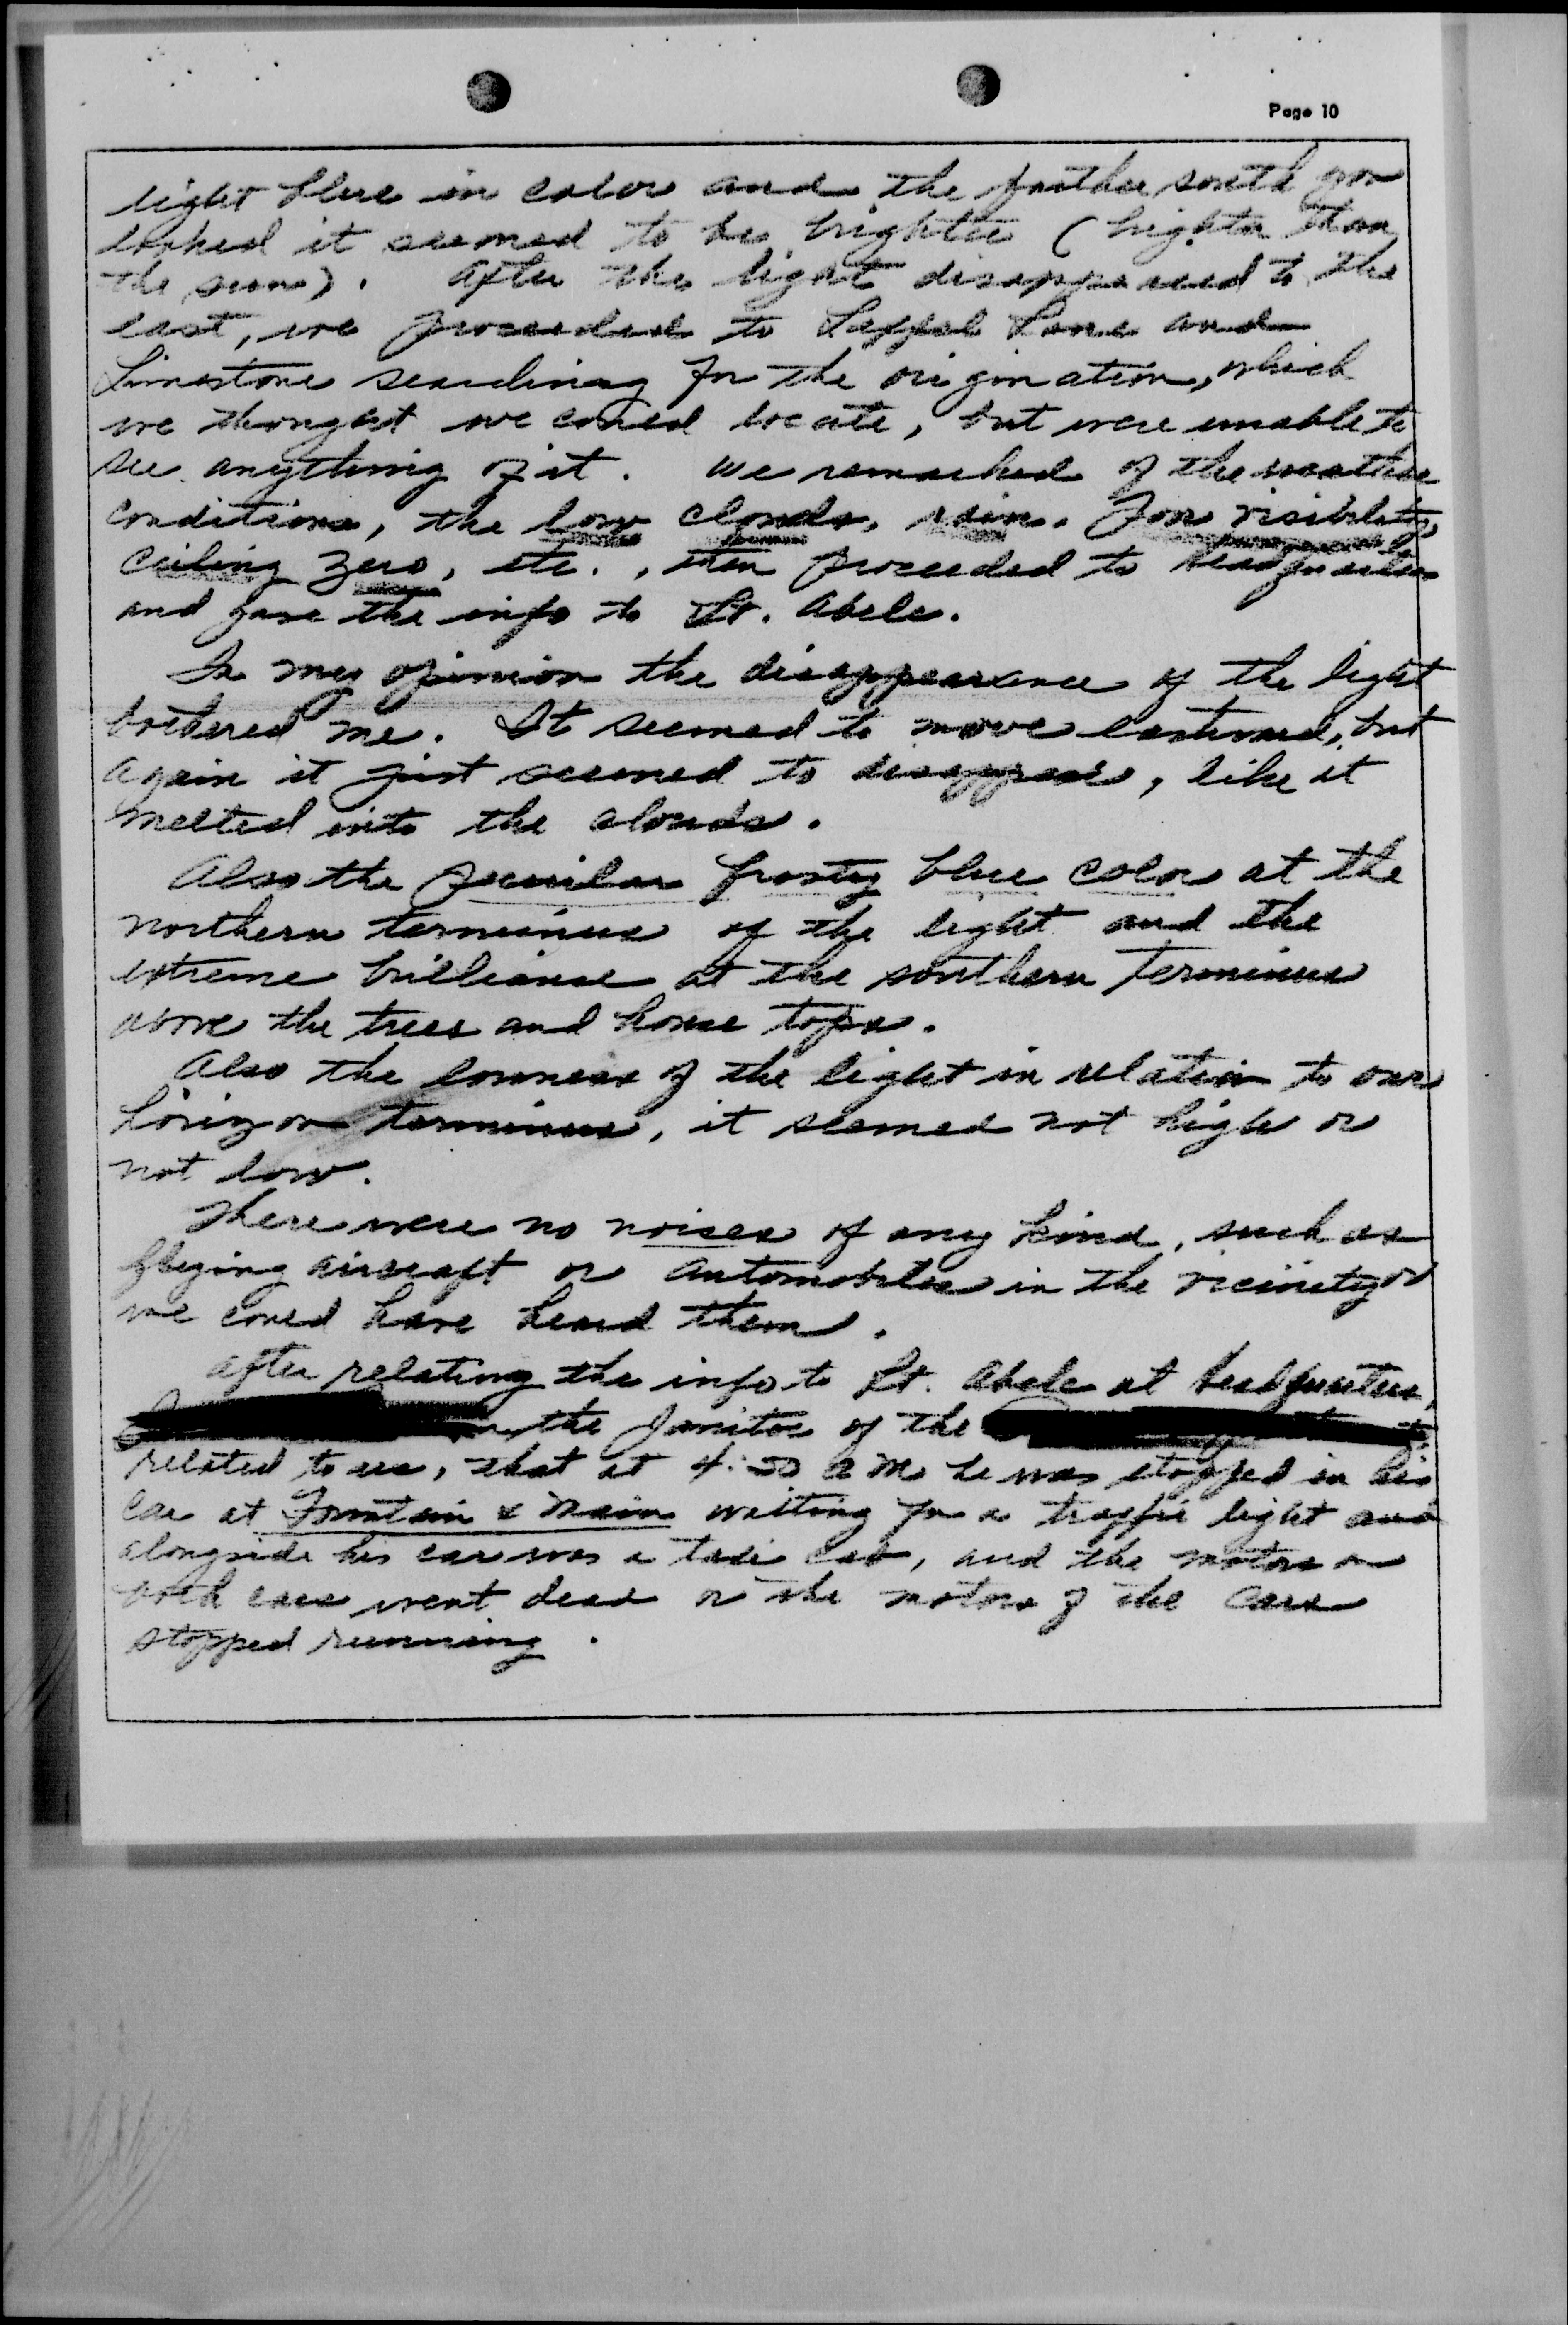 Page 10
light blue in color and the farther south you
looked it seemed to be brighter (brighter than
the sun). After the light disappeared to the
east, we proceeded to Leffel Lane and
Limestone searching for the origination, which
we thought we could locate, but were unable to
see anything of it. We remarked of the weather
conditions, the low clouds, rain. Low visibility,
ceiling zero, etc., then proceeded to headquarters
and gave the info to Lt. Abele.
In my opinion the disappearance of the light
bothered me. It seemed to move eastward, but
again it just seemed to disappear, like it
melted into the clouds.
Also the peculiar frosty blue color at the
northern terminus of the light and the
extreme brilliance at the southern terminus
above the trees and house tops.
Also the lowness of the light in relation to our
horizon terminus, it seemed not high or
not low.
There were no noises of any kind, such as
flying aircraft or automobiles in the vicinity or
we could have heard them.
After relating the info to Lt. Abele at headquarters,
the Janitor of the
related to us, that at A.M. he was stopped in his
car at Fountain & Main waiting for a traffic light and
alongside his car was a taxi cab, and the motors on
both cars went dead or the motors of the cars
stopped running.